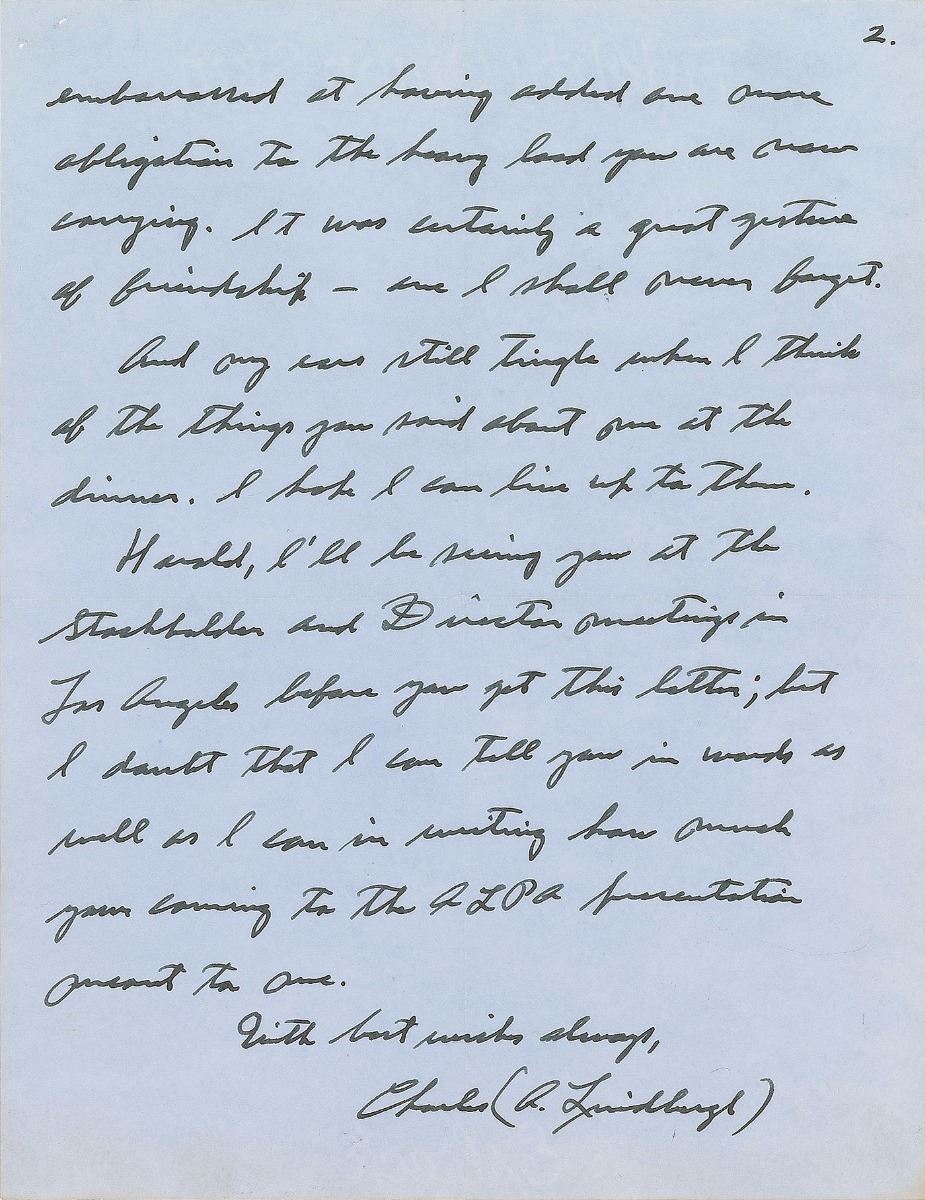 2.
embarrassed at having added one more
obligation to the heavy load you are now
carrying. It was certainly a great gesture
of friendship – one I shall never forget.
And my ears still tingle when I think
of the things you said about me at the
dinner. I hope I can live up to them.
Harold, I'll be seeing you at the
Stockholder and Director meetings in
Los Angeles before you get this letter; but
I doubt that I can tell you in words as
well as I can in writing how much
your coming to the ALPA presentation
meant to me.
With best wishes always,
Charles (A. Lindbergh)